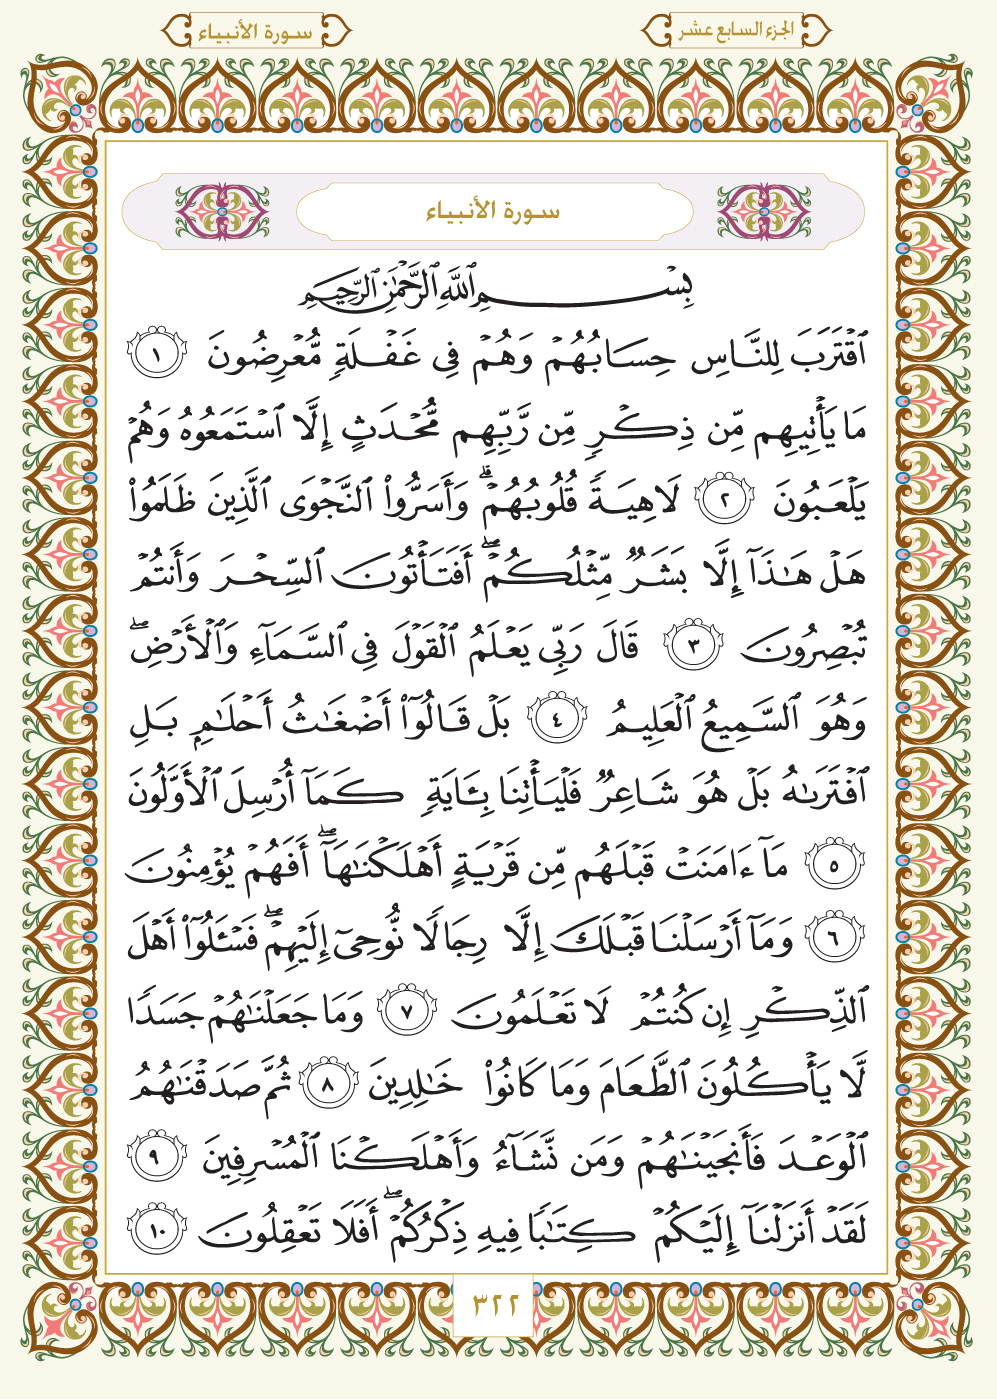 الجزء السابع عشر
سورة الأنبياء
سورة الأنبياء
بِسْمِ ٱللَّهِ ٱلرَّحْمَٰنِ ٱلرَّحِيمِ
ٱقْتَرَبَ لِلنَّاسِ حِسَابُهُمْ وَهُمْ فِى غَفْلَةٍ مُّعْرِضُونَ ١
مَا يَأْتِيهِم مِّن ذِكْرٍ مِّن رَّبِّهِم مُّحْدَثٍ إِلَّا ٱسْتَمَعُوهُ وَهُمْ
يَلْعَبُونَ ٢ لَاهِيَةً قُلُوبُهُمْ ۗ وَأَسَرُّوا۟ ٱلنَّجْوَى ٱلَّذِينَ ظَلَمُوا۟
هَلْ هَٰذَآ إِلَّا بَشَرٌ مِّثْلُكُمْ ۖ أَفَتَأْتُونَ ٱلسِّحْرَ وَأَنتُمْ
تُبْصِرُونَ ٣ قَالَ رَبِّى يَعْلَمُ ٱلْقَوْلَ فِى ٱلسَّمَآءِ وَٱلْأَرْضِ ۖ
وَهُوَ ٱلسَّمِيعُ ٱلْعَلِيمُ ٤ بَلْ قَالُوٓا۟ أَضْغَٰثُ أَحْلَٰمٍۭ بَلِ
ٱفْتَرَىٰهُ بَلْ هُوَ شَاعِرٌ فَلْيَأْتِنَا بِـَٔايَةٍ كَمَآ أُرْسِلَ ٱلْأَوَّلُونَ
٥ مَآ ءَامَنَتْ قَبْلَهُم مِّن قَرْيَةٍ أَهْلَكْنَٰهَآ ۖ أَفَهُمْ يُؤْمِنُونَ
٦ وَمَآ أَرْسَلْنَا قَبْلَكَ إِلَّا رِجَالًا نُّوحِىٓ إِلَيْهِمْ ۖ فَسْـَٔلُوٓا۟ أَهْلَ
ٱلذِّكْرِ إِن كُنتُمْ لَا تَعْلَمُونَ ٧ وَمَا جَعَلْنَٰهُمْ جَسَدًا
لَّا يَأْكُلُونَ ٱلطَّعَامَ وَمَا كَانُوا۟ خَٰلِدِينَ ٨ ثُمَّ صَدَقْنَٰهُمُ
ٱلْوَعْدَ فَأَنجَيْنَٰهُمْ وَمَن نَّشَآءُ وَأَهْلَكْنَا ٱلْمُسْرِفِينَ ٩
لَقَدْ أَنزَلْنَآ إِلَيْكُمْ كِتَٰبًا فِيهِ ذِكْرُكُمْ ۖ أَفَلَا تَعْقِلُونَ ١٠
٣٢٢